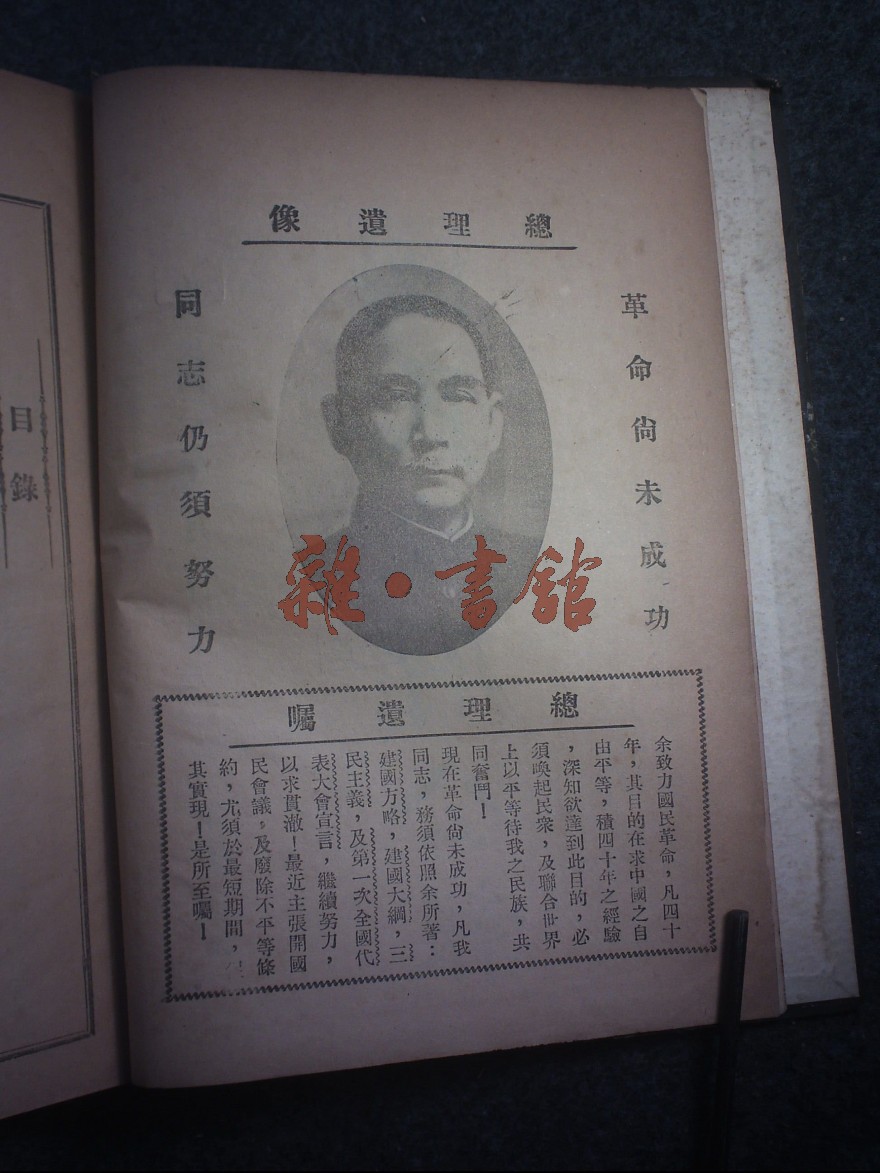 總理遺像
革命尙未成功
同志仍須努力
雜·書館
總理遺囑
余致力國民革命，凡四十
年，其目的在求中國之自
由平等，積四十年之經驗
，深知欲達到此目的，必
須喚起民衆，及聯合世界
上以平等待我之民族，共
同奮鬥！
現在革命尙未成功，凡我
同志，務須依照余所著：
建國方略，建國大綱，三
民主義，及第一次全國代
表大會宣言，繼續努力，
以求貫澈！最近主張開國
民會議，及廢除不平等條
約，尤須於最短期間，
其實現！是所至囑！
目錄